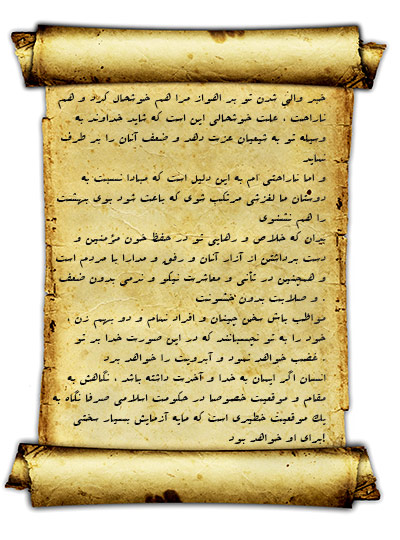 خبر والي شدن تو بر اهواز مرا هم خوشحال كرد و هم
ناراحت ، علت خوشحالي اين است كه شايد خداوند به
وسيله تو به شيعيان عزت دهد و ضعف آنان را بر طرف
نمايد
و اما ناراحتي ام به اين دليل است كه مبادا نسبت به
دوستان ما لغزشي مرتكب شوي كه باعث شود بوي بهشت
را هم نشنوي
بدان كه خلاص و رهايي تو در حفظ خون مؤمنين و
دست برداشتن از آزار آنان و رفق و مدارا با مردم است
و همچنين در تأني و معاشرت نيكو و نرمي بدون ضعف
. و صلابت بدون خشونت
مواظب باش سخن چينان و افراد نمام و دو بهم زن ،
خود را به تو نچسبانند كه در اين صورت خدا بر تو
. غضب خواهد نمود و آبرويت را خواهد برد
انسان اگر ايمان به خدا و آخرت داشته باشد ، نگاهش به
مقام و موقعيت خصوصا در حكومت اسلامي صرفا نگاه به
يك موقعيت خطيري است كه مايه آزمايش بسيار سختي
!براي او خواهد بود